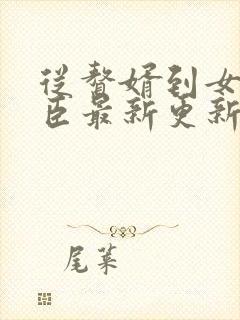 从赘婿到女
臣最新更新
尾莱